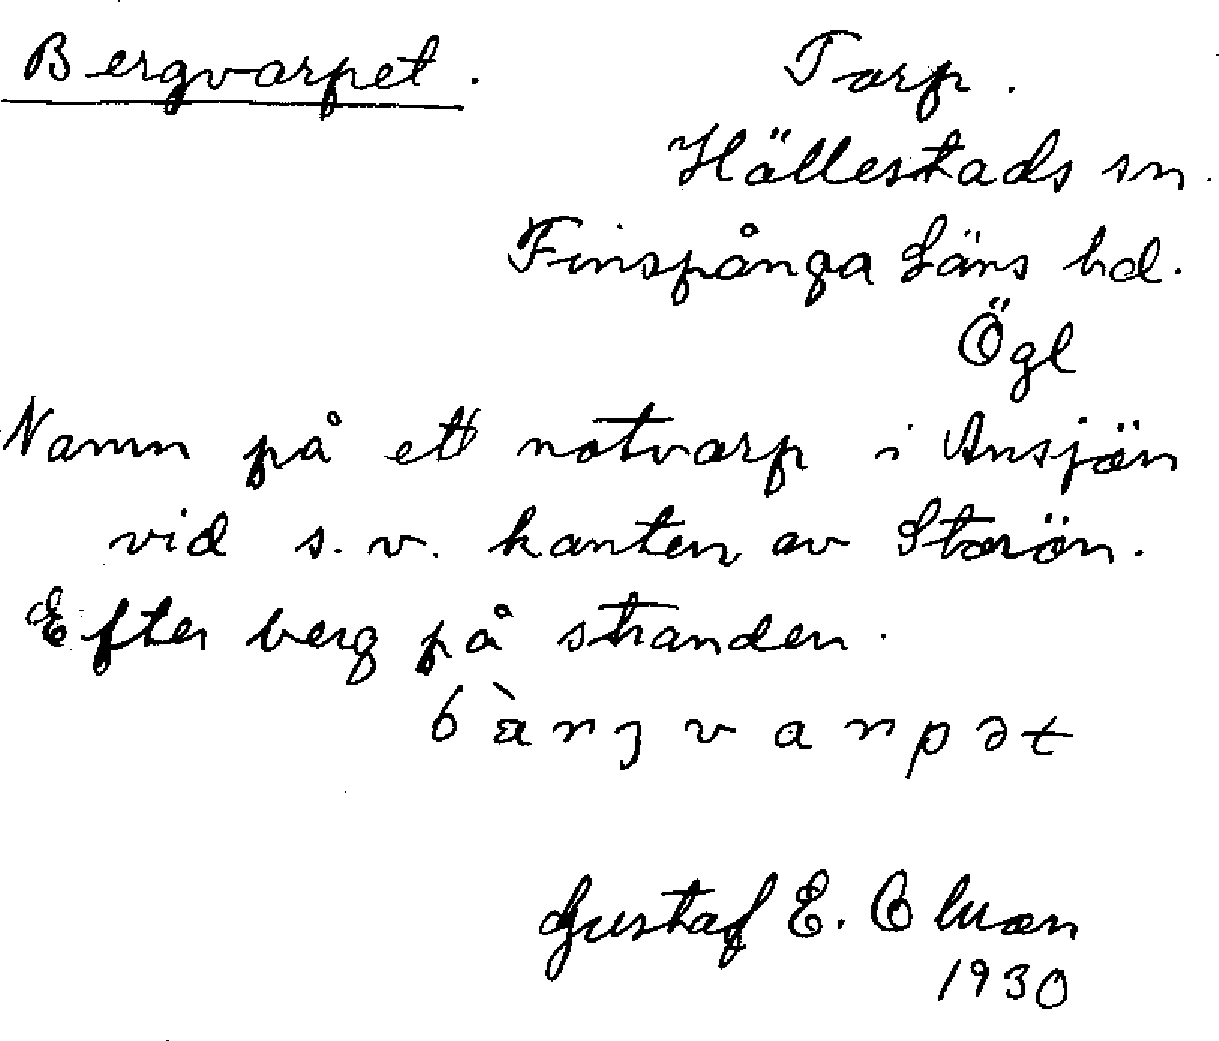 Bergvarpet. Torp.
Hällestads sn.
Finspånga Läns hd.
Ögl
Namn på ett notvarp i Ansjön
vid s.v. kanten av Storön.
Efter berg på stranden.
Gustaf E.
1930